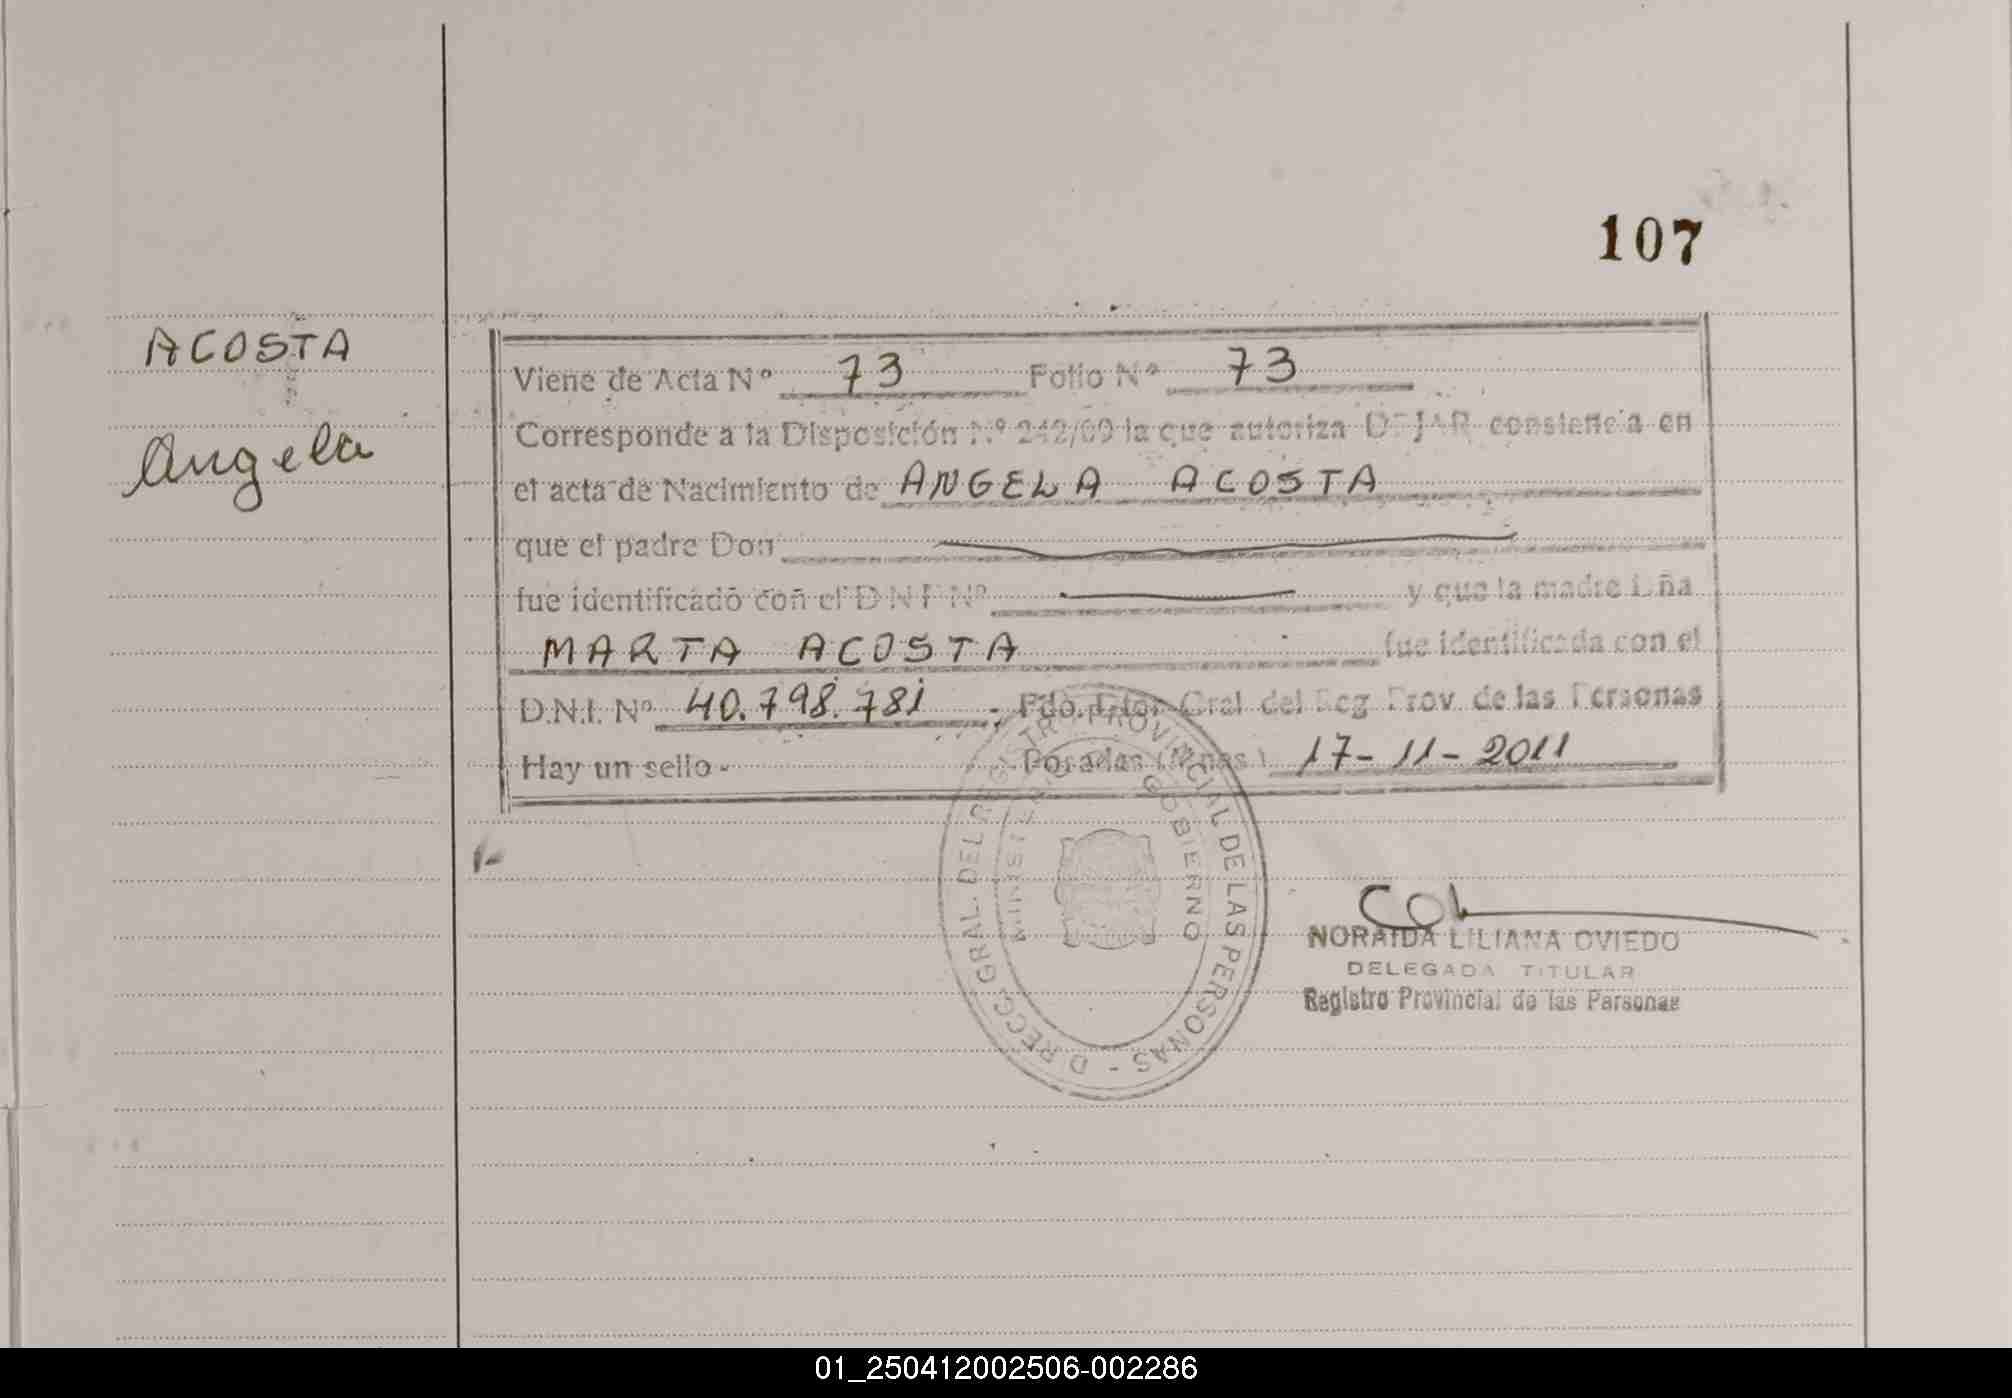 107
ACOSTA
Angela
Viene de Acta Nº 73 Folio Nº 73
Corresponde a la Disposición Nº 242/69 la que autoriza DEJAR constencia en
el acta de Nacimiento de ANGELA ACOSTA
que el padre Don
fue identificado con el D N I Nº y que la madre Dña
MARTA ACOSTA fue identificada con el
D.N.I. Nº 40.798.781 Fdo. Dtor Gral del Reg Prov. de las Personas
Hay un sello - Posadas (Mnes) 17-11-2011
DIRECC. GRAL. DEL REGISTRO PROVINCIAL DE LAS PERSONAS -
MINISTERIO GOBIERNO
NORAIDA LILIANA OVIEDO
DELEGADA TITULAR
Registro Provincial de las Personas
01_250412002506-002286